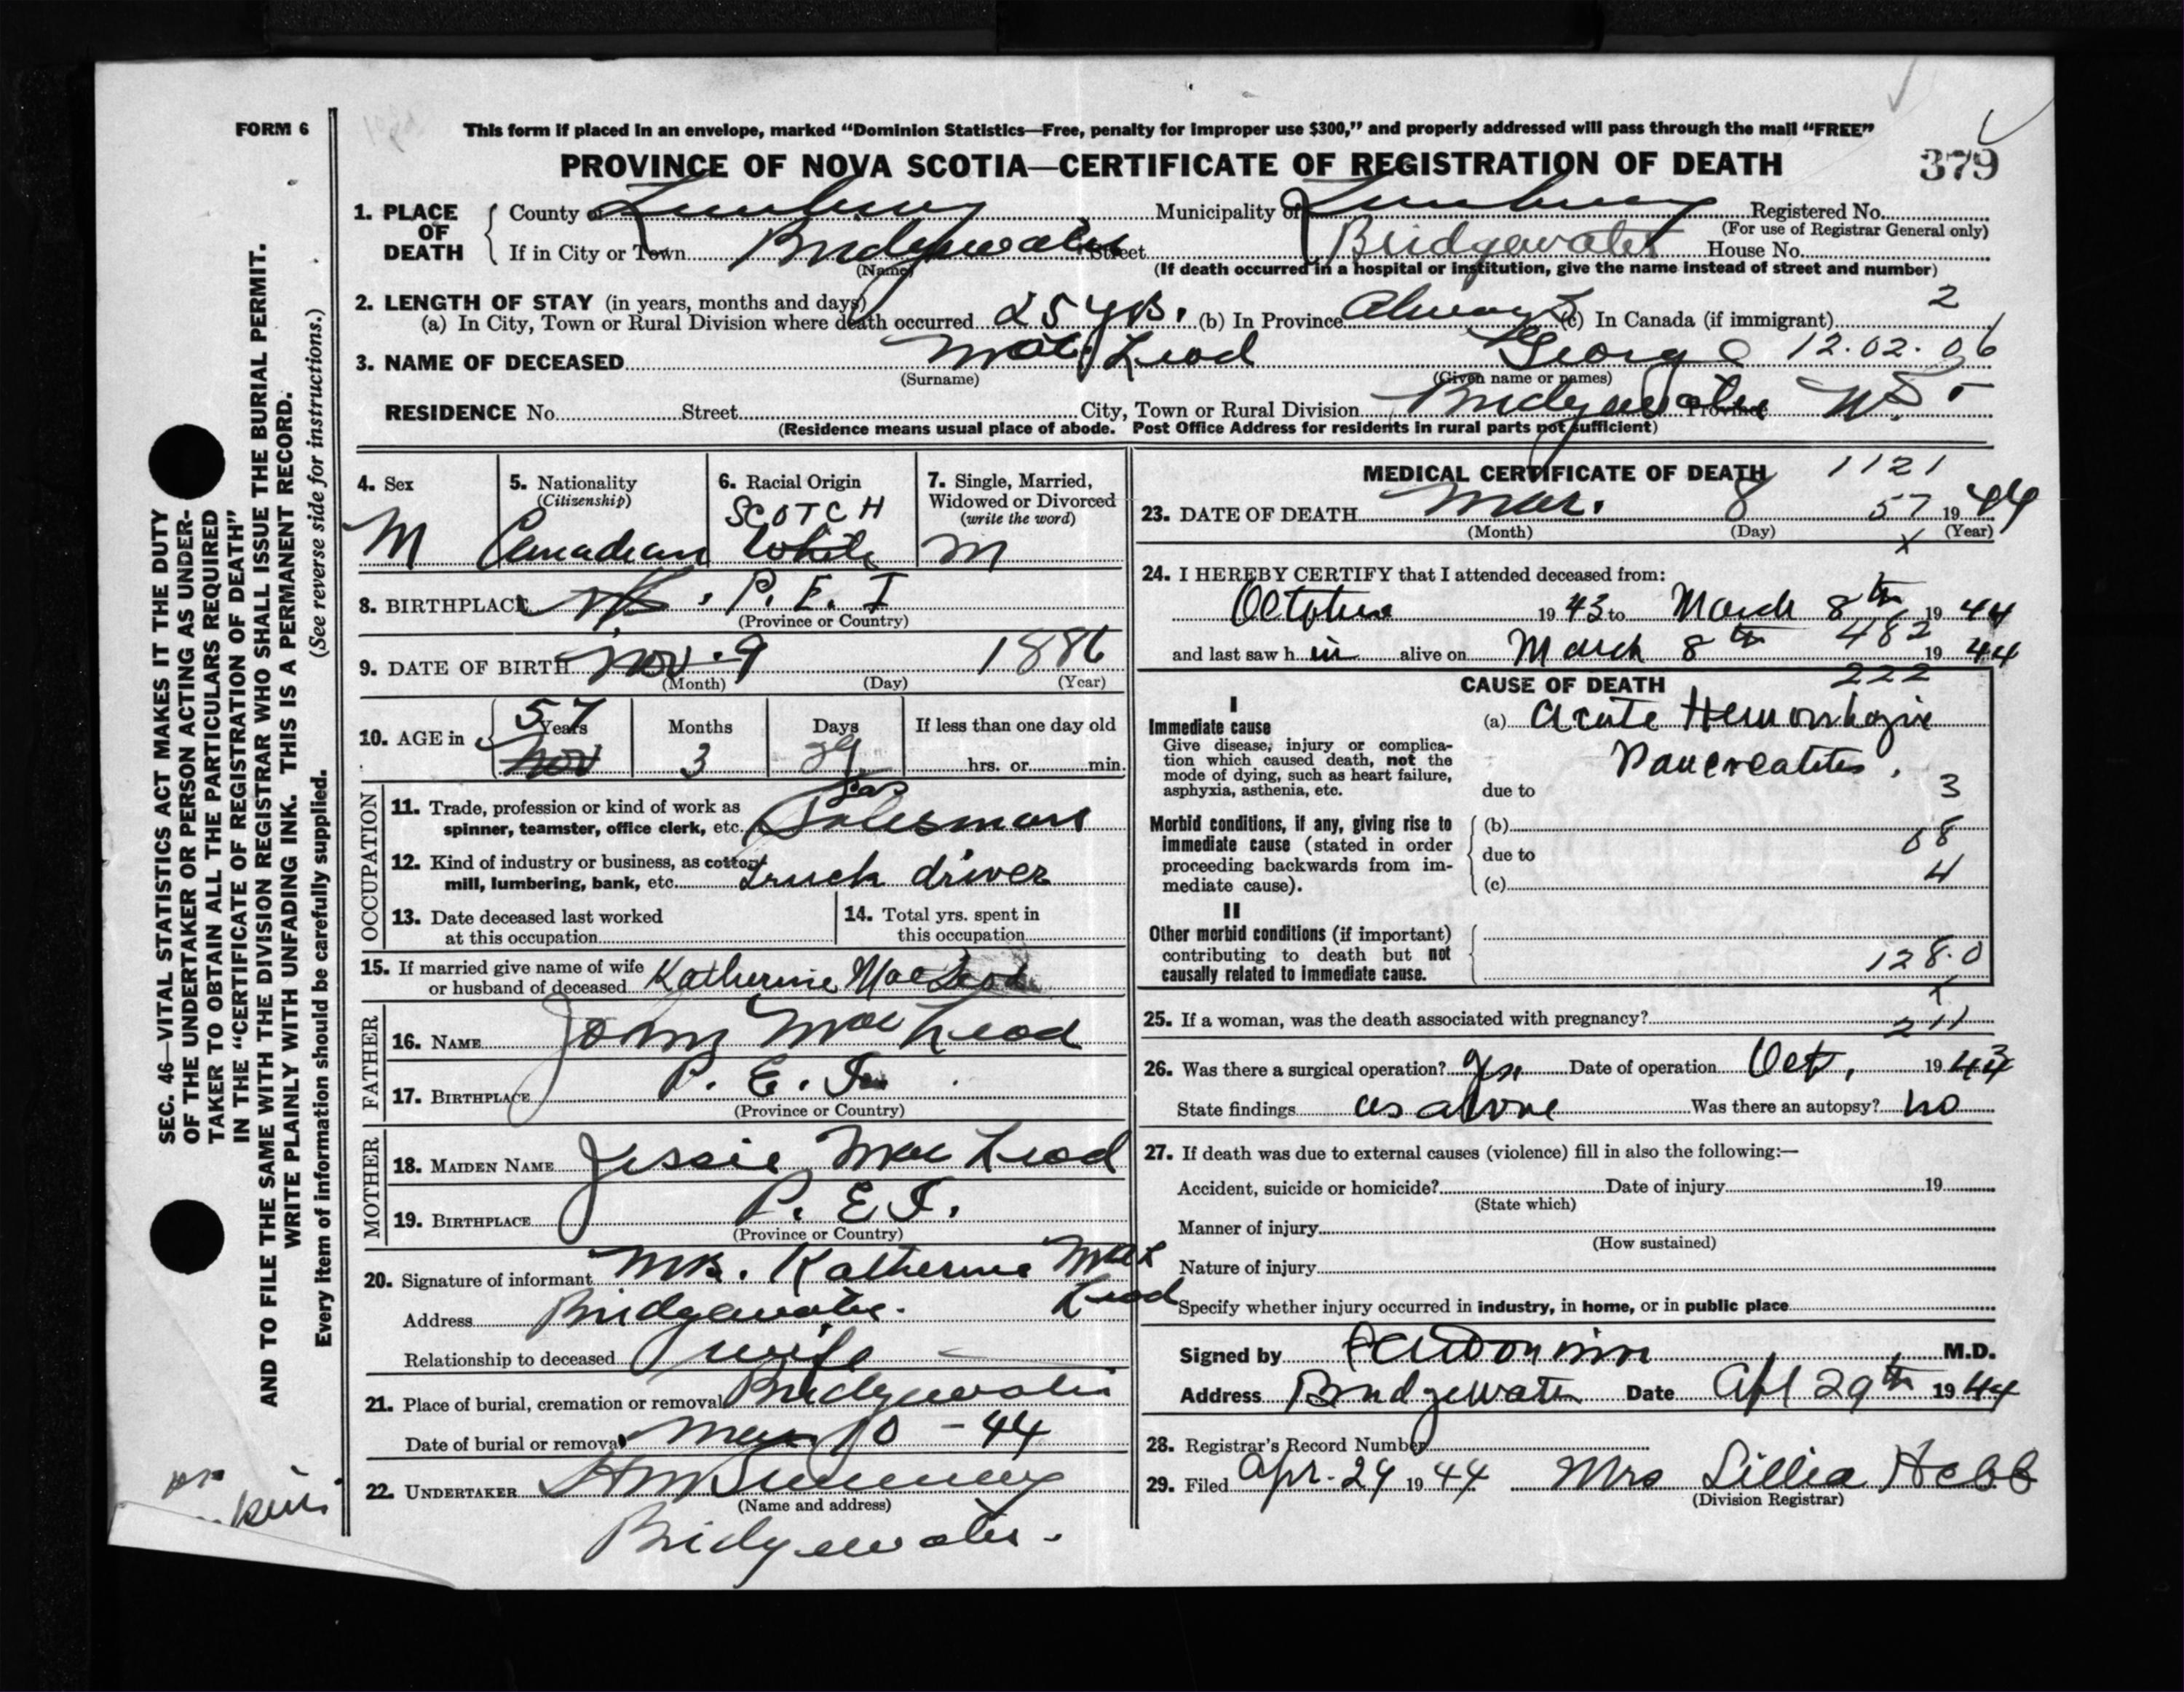 FORM 6
This form if placed in an envelope, marked “Dominion Statistics—Free, penalty for improper use $300,” and properly addressed will pass through the mail “FREE”
PROVINCE OF NOVA SCOTIA—CERTIFICATE OF REGISTRATION OF DEATH
379
1. PLACE OF DEATH
County of Lunenburg Municipality of Lunenburg Registered No.
(For use of Registrar General only)
If in City or Town Bridgewater Street Bridgewater House No.
(Name) (If death occurred in a hospital or institution, give the name instead of street and number)
2. LENGTH OF STAY (in years, months and days)
(a) In City, Town or Rural Division where death occurred 25 yrs. (b) In Province Always (c) In Canada (if immigrant) 2
3. NAME OF DECEASED MacLeod George 12.02.06
(Surname) (Given name or names)
RESIDENCE No. Street City, Town or Rural Division Bridgewater Province N.S.
(Residence means usual place of abode. Post Office Address for residents in rural parts not sufficient)
4. Sex
M
5. Nationality
(Citizenship)
Canadian
6. Racial Origin
SCOTCH
White
7. Single, Married,
Widowed or Divorced
(write the word)
M
8. BIRTHPLACE P.E.I
(Province or Country)
9. DATE OF BIRTH Nov. 9 1886
(Month) (Day) (Year)
10. AGE in
57
Years Months Days If less than one day old
Nov 3 29 hrs. or min.
OCCUPATION
11. Trade, profession or kind of work as
spinner, teamster, office clerk, etc. Salesman
12. Kind of industry or business, as cotton
mill, lumbering, bank, etc. Truck driver
13. Date deceased last worked
at this occupation
14. Total yrs. spent in
this occupation
15. If married give name of wife
or husband of deceased Katherine MacLeod
FATHER
16. NAME John MacLeod
17. BIRTHPLACE P.E.I.
(Province or Country)
MOTHER
18. MAIDEN NAME Jessie MacLeod
19. BIRTHPLACE P.E.I.
(Province or Country)
20. Signature of informant Mrs. Katherine Mac
Leod
Address Bridgewater.
Relationship to deceased wife
21. Place of burial, cremation or removal Bridgewater
Date of burial or removal Mar 10 - 44
22. UNDERTAKER
(Name and address)
Bridgewater.
MEDICAL CERTIFICATE OF DEATH 1121
23. DATE OF DEATH Mar. 8 57 1944
(Month) (Day) (Year)
x
24. I HEREBY CERTIFY that I attended deceased from:
October 1943 to March 8th 1944
482
and last saw h im alive on March 8th 1944
222
CAUSE OF DEATH
I
Immediate cause
Give disease, injury or complica-
tion which caused death, not the
mode of dying, such as heart failure,
asphyxia, asthenia, etc.
(a) Acute Hemorrhagic
Pancreatitis.
due to 3
Morbid conditions, if any, giving rise to
immediate cause (stated in order
proceeding backwards from im-
mediate cause).
(b) 08
due to
4
(c)
II
Other morbid conditions (if important)
contributing to death but not
causally related to immediate cause.
128.0
25. If a woman, was the death associated with pregnancy?
211
26. Was there a surgical operation? yes Date of operation Oct. 1943
State findings as above Was there an autopsy? no
27. If death was due to external causes (violence) fill in also the following:—
Accident, suicide or homicide? Date of injury 19
(State which)
Manner of injury
(How sustained)
Nature of injury
Specify whether injury occurred in industry, in home, or in public place
Signed by M.D.
Address Bridgewater Date Apl 29th 1944
28. Registrar's Record Number
29. Filed Apr. 29 1944 Mrs Lillia Hebb
(Division Registrar)
SEC. 46—VITAL STATISTICS ACT MAKES IT THE DUTY
OF THE UNDERTAKER OR PERSON ACTING AS UNDER-
TAKER TO OBTAIN ALL THE PARTICULARS REQUIRED
IN THE “CERTIFICATE OF REGISTRATION OF DEATH”
AND TO FILE THE SAME WITH THE DIVISION REGISTRAR WHO SHALL ISSUE THE BURIAL PERMIT.
WRITE PLAINLY WITH UNFADING INK. THIS IS A PERMANENT RECORD.
Every item of information should be carefully supplied. (See reverse side for instructions.)